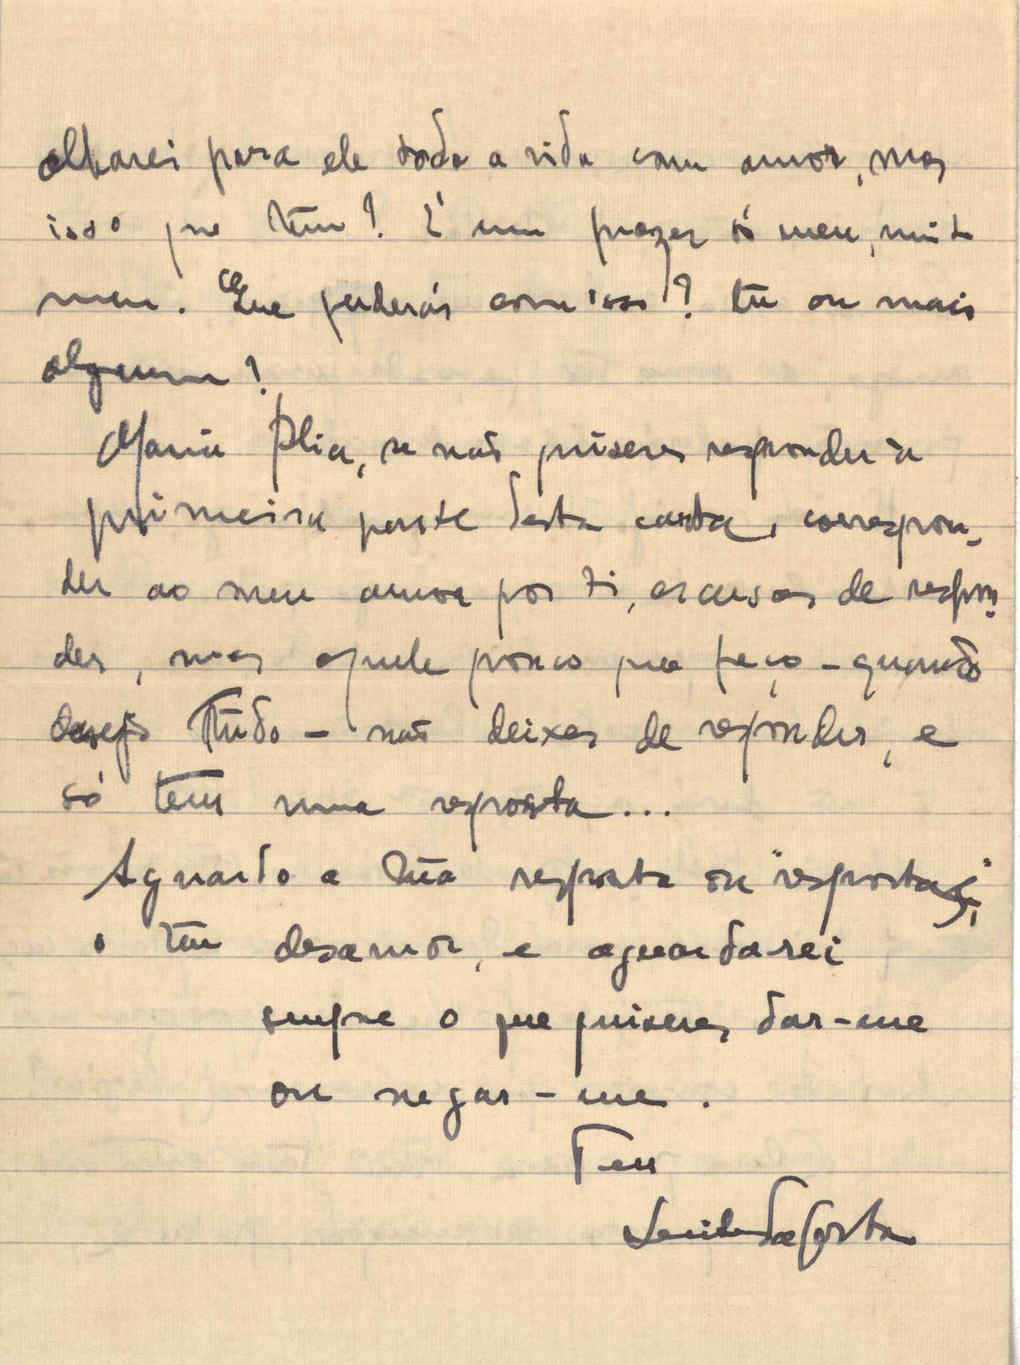 olharei para ele toda a vida com amor, mas
isso que tem? É um prazer só meu, muito
meu. Que perderás com isso? tu ou mais
alguem?
Maria, se não quiseres responder à
primeira parte desta carta, correspon-
der ao meu amor por ti, escusas de respon-
der, mas aquele pouco que peço - quando
desejo tudo - não deixes de responder, e
só tem uma resposta...
Aguardo a tua resposta ou "respostas",
o teu desamor, e aguardarei
sempre o que quiseres dar-me
ou negar-me.
Teu
da Costa